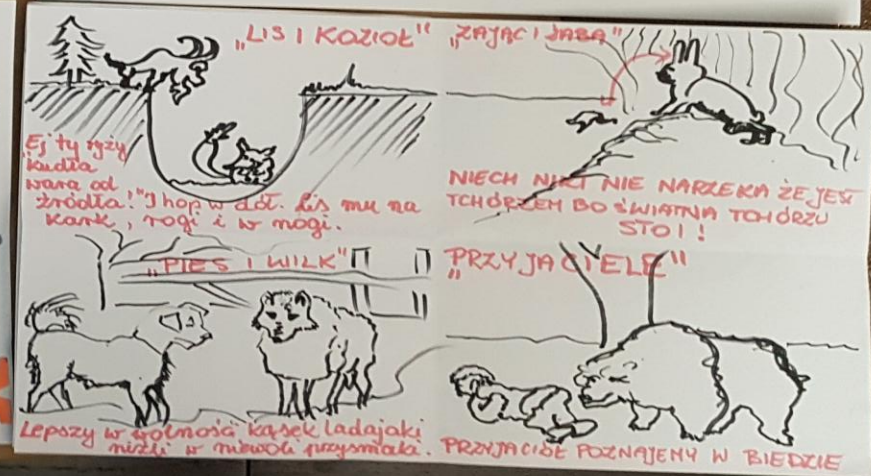 "LIS I KOZIOŁ"
"Ej ty ryży
kudła
wara od
źródła!" I hop w dół. Lis mu na
kark, rogi i w nogi.
"ZAJĄC I ŻABA"
NIECH NIKT NIE NARZEKA ŻE JEST
TCHÓRZEM BO ŚWIAT NA TCHÓRZU
STOI!
"PIES I WILK"
Lepszy w wolności kąsek ladajaki
niźli w niewoli przysmaki.
"PRZYJACIELE"
PRZYJACIÓŁ POZNAJEMY W BIEDZIE